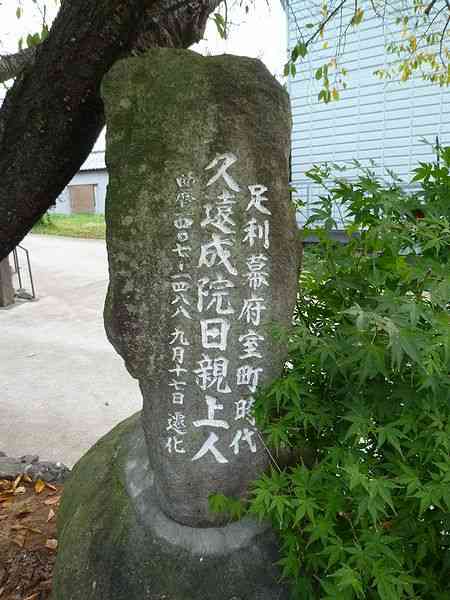 足利幕府室町時代
久遠成院日親上人
西暦一四〇七-一四八八 九月十七日 遷化